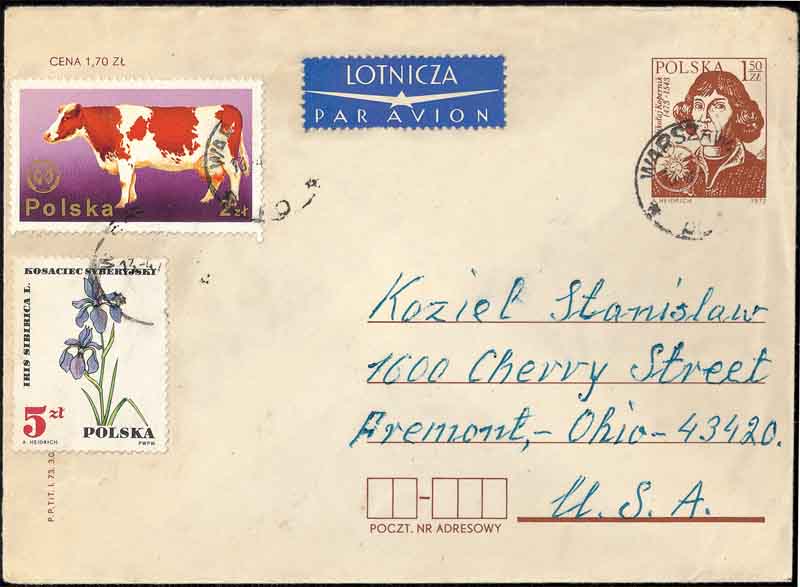 CENA 1,70 ZŁ
LOTNICZA
PAR AVION
POLSKA 1 50 ZŁ
Mikołaj Kopernik
1473-1543
A. HEIDRICH 1972
WARSZAWA
Polska 2 zł
KOSACIEC SYBERYJSKI
IRIS SIBIRICA L.
5 zł
POLSKA
A. HEIDRICH PWPW
Kozieł Stanisław
1600 Cherry Street
Fremont,- Ohio - 43420.
U. S. A.
POCZT. NR ADRESOWY